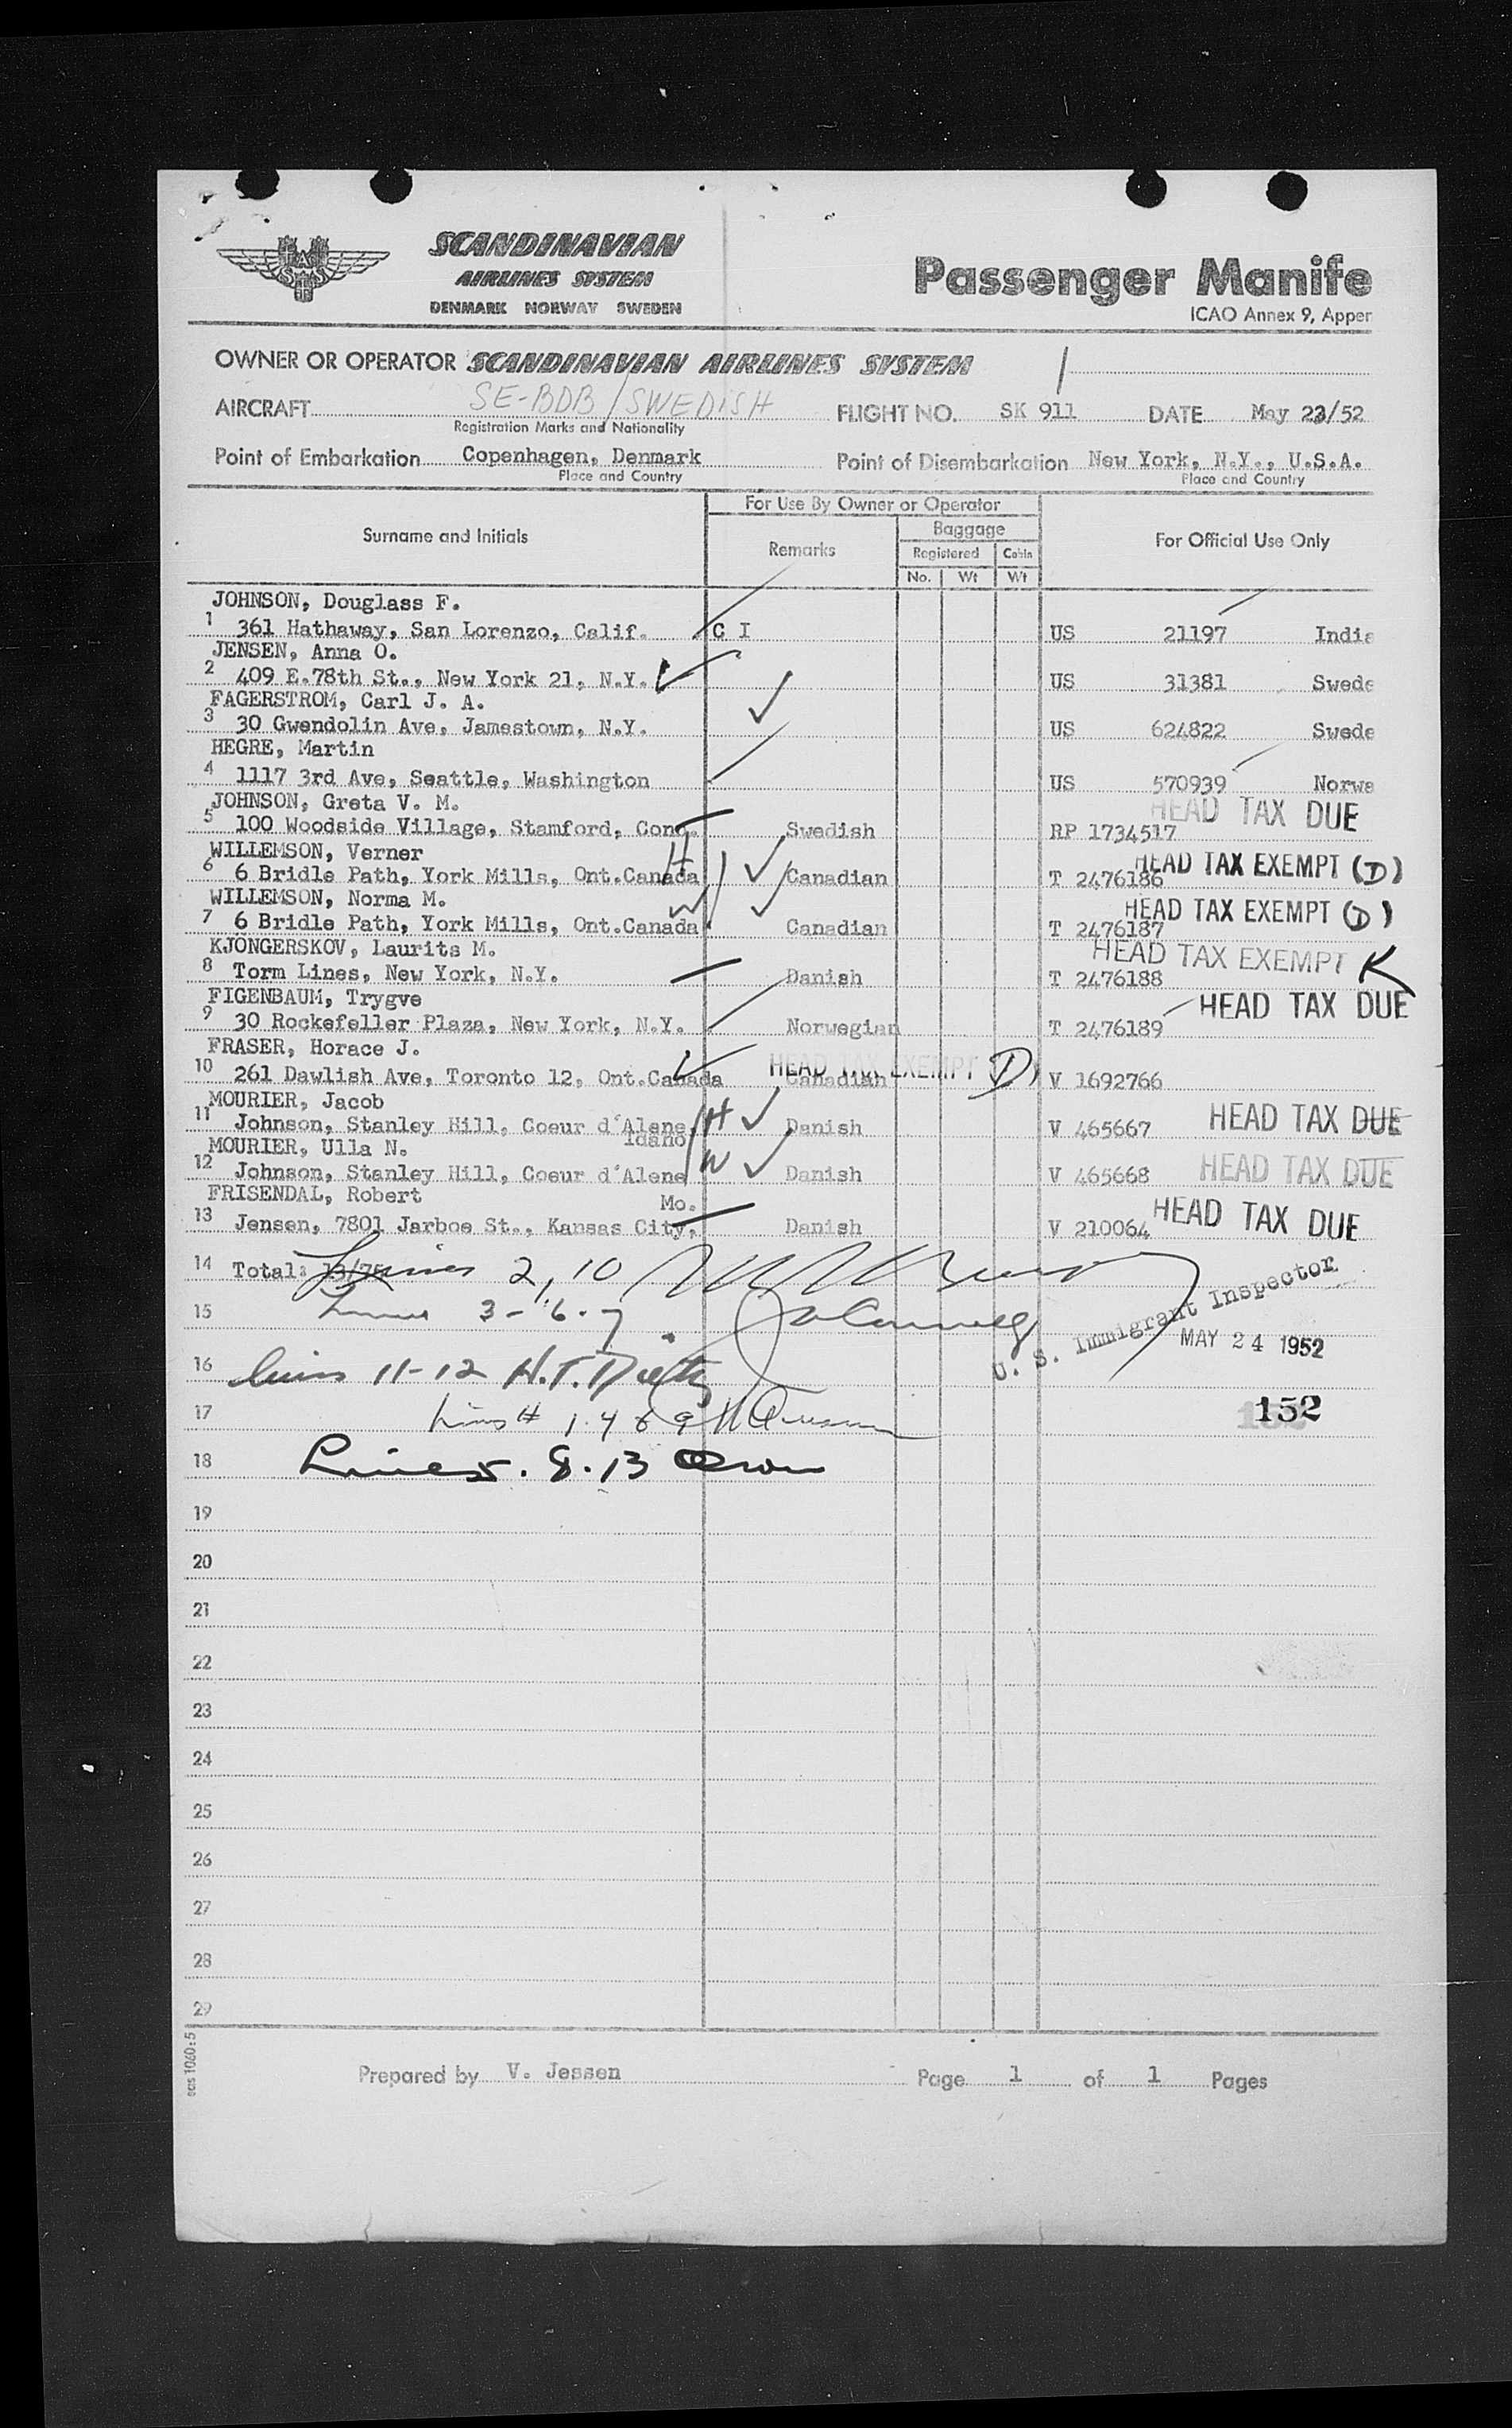 SCANDINAVIAN
AIRLINES SYSTEM
DENMARK NORWAY SWEDEN
SAS
Passenger Manife
ICAO Annex 9, Apper
OWNER OR OPERATOR SCANDINAVIAN AIRLINES SYSTEM
AIRCRAFT SE-BDB / SWEDISH FLIGHT NO. SK 911 DATE May 23/52
Registration Marks and Nationality
Point of Embarkation Copenhagen, Denmark Point of Disembarkation New York, N.Y., U.S.A.
Place and Country Place and Country
For Use By Owner or Operator
Surname and Initials Remarks Baggage For Official Use Only
Registered Cabin
No. Wt Wt
JOHNSON, Douglass F.
1 361 Hathaway, San Lorenzo, Calif. C I US 21197 India
JENSEN, Anna O.
2 409 E.78th St., New York 21, N.Y. US 31381 Swede
FAGERSTROM, Carl J. A.
3 30 Gwendolin Ave, Jamestown, N.Y. US 624822 Swede
HEGRE, Martin
4 1117 3rd Ave, Seattle, Washington US 570939 Norwe
JOHNSON, Greta V. M. HEAD TAX DUE
5 100 Woodside Village, Stamford, Conn. Swedish RP 1734517
WILLEMSON, Verner H HEAD TAX EXEMPT (D)
6 6 Bridle Path, York Mills, Ont.Canada Canadian T 2476186
WILLEMSON, Norma M. W HEAD TAX EXEMPT (D)
7 6 Bridle Path, York Mills, Ont.Canada Canadian T 2476187
KJONGERSKOV, Laurits M. HEAD TAX EXEMPT K
8 Torm Lines, New York, N.Y. Danish T 2476188
FIGENBAUM, Trygve HEAD TAX DUE
9 30 Rockefeller Plaza, New York, N.Y. Norwegian T 2476189
FRASER, Horace J. HEAD TAX EXEMPT (D)
10 261 Dawlish Ave, Toronto 12, Ont.Canada Canadian V 1692766
MOURIER, Jacob
11 Johnson, Stanley Hill, Coeur d'Alene, H Danish V 465667 HEAD TAX DUE
Idaho
MOURIER, Ulla N.
12 Johnson, Stanley Hill, Coeur d'Alene W Danish V 465668 HEAD TAX DUE
FRISENDAL, Robert Mo.
13 Jensen, 7801 Jarboe St., Kansas City, Danish V 210064 HEAD TAX DUE
14 Total: Lines 2, 10
15 Lines 3-6-7
U. S. Immigrant Inspector
MAY 24 1952
16 Lines 11-12 H.T.
17 Lines # 1 4 & 9
152
18 Lines 5. 8. 13
19
20
21
22
23
24
25
26
27
28
29
Prepared by V. Jessen Page 1 of 1 Pages